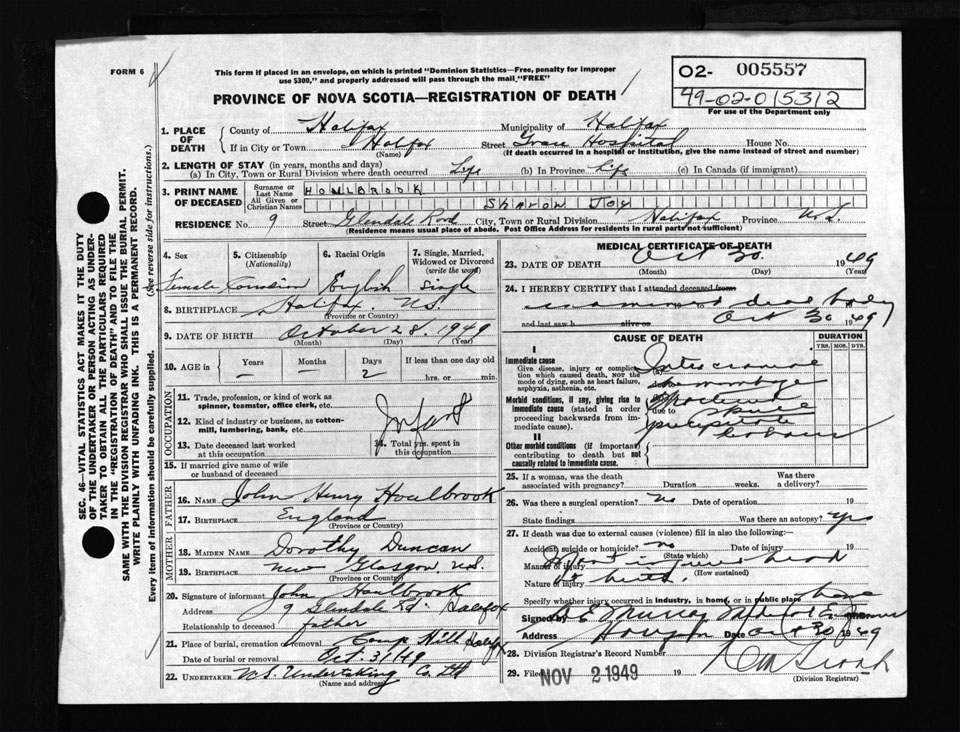 FORM 6
This form if placed in an envelope, on which is printed "Dominion Statistics—Free, penalty for improper
use $300," and properly addressed will pass through the mail "FREE"
PROVINCE OF NOVA SCOTIA—REGISTRATION OF DEATH
02- 005557
49-02-015312
For use of the Department only
SEC. 46—VITAL STATISTICS ACT MAKES IT THE DUTY
OF THE UNDERTAKER OR PERSON ACTING AS UNDER-
TAKER TO OBTAIN ALL THE PARTICULARS REQUIRED
IN THE "REGISTRATION OF DEATH" AND TO FILE THE
SAME WITH THE DIVISION REGISTRAR WHO SHALL ISSUE THE BURIAL PERMIT.
WRITE PLAINLY WITH UNFADING INK. THIS IS A PERMANENT RECORD.
Every item of information should be carefully supplied. (See reverse side for instructions.)
1. PLACE OF DEATH
County of Halifax Municipality of Halifax
If in City or Town Halifax Street Grace Hospital House No.
(Name) (If death occurred in a hospital or institution, give the name instead of street and number)
2. LENGTH OF STAY (in years, months and days)
(a) In City, Town or Rural Division where death occurred Life (b) In Province Life (c) In Canada (if immigrant)
3. PRINT NAME OF DECEASED
Surname or Last Name HOULBROOK
All Given or Christian Names SHARON JOY
RESIDENCE No. 9 Street Glendale Road City, Town or Rural Division Halifax Province N.S.
(Residence means usual place of abode. Post Office Address for residents in rural parts not sufficient)
4. Sex 5. Citizenship (Nationality) 6. Racial Origin 7. Single, Married, Widowed or Divorced (write the word)
Female Canadian English Single
8. BIRTHPLACE Halifax N.S.
(Province or Country)
9. DATE OF BIRTH October 28. 1949
(Month) (Day) (Year)
10. AGE in Years Months Days If less than one day old
— — 2 hrs. or min.
OCCUPATION
11. Trade, profession, or kind of work as spinner, teamster, office clerk, etc.
12. Kind of industry or business, as cotton-mill, lumbering, bank, etc.
Infant
13. Date deceased last worked at this occupation
14. Total yrs. spent in this occupation
15. If married give name of wife or husband of deceased
FATHER
16. NAME John Henry Houlbrook
17. BIRTHPLACE England
(Province or Country)
MOTHER
18. MAIDEN NAME Dorothy Duncan
19. BIRTHPLACE New Glasgow, N.S.
(Province or Country)
20. Signature of informant John Houlbrook
Address 9 Glendale Rd. Halifax
Relationship to deceased father
21. Place of burial, cremation or removal Camp Hill Halifax
Date of burial or removal Oct. 31/49
22. UNDERTAKER N.S. Undertaking Co. Ltd
(Name and address)
MEDICAL CERTIFICATE OF DEATH
23. DATE OF DEATH Oct 30. 1949
(Month) (Day) (Year)
24. I HEREBY CERTIFY that I attended deceased from
examined dead body
and last saw h alive on Oct 30 1949
CAUSE OF DEATH DURATION
YRS. MOS. DYS.
I
Immediate cause
Give disease, injury or complication which caused death, NOT the mode of dying, such as heart failure, asphyxia, asthenia, etc.
(a) Intercranial
hemorrhage
Morbid conditions, if any, giving rise to immediate cause (stated in order proceeding backwards from immediate cause).
due to
precipitate
labour
II
Other morbid conditions (if important) contributing to death but not causally related to immediate cause.
25. If a woman, was the death associated with pregnancy? Duration weeks. Was there a delivery?
26. Was there a surgical operation? no Date of operation 19
State findings Was there an autopsy? yes
27. If death was due to external causes (violence) fill in also the following:—
Accident, suicide or homicide? no Date of injury 19
(State which)
Manner of injury head
(How sustained)
Nature of injury birth.
Specify whether injury occurred in industry, in home, or in public place
Signed by Murray Medical Examiner
Address Date Oct 30 1949
28. Division Registrar's Record Number
29. Filed NOV 2 1949 19
(Division Registrar)